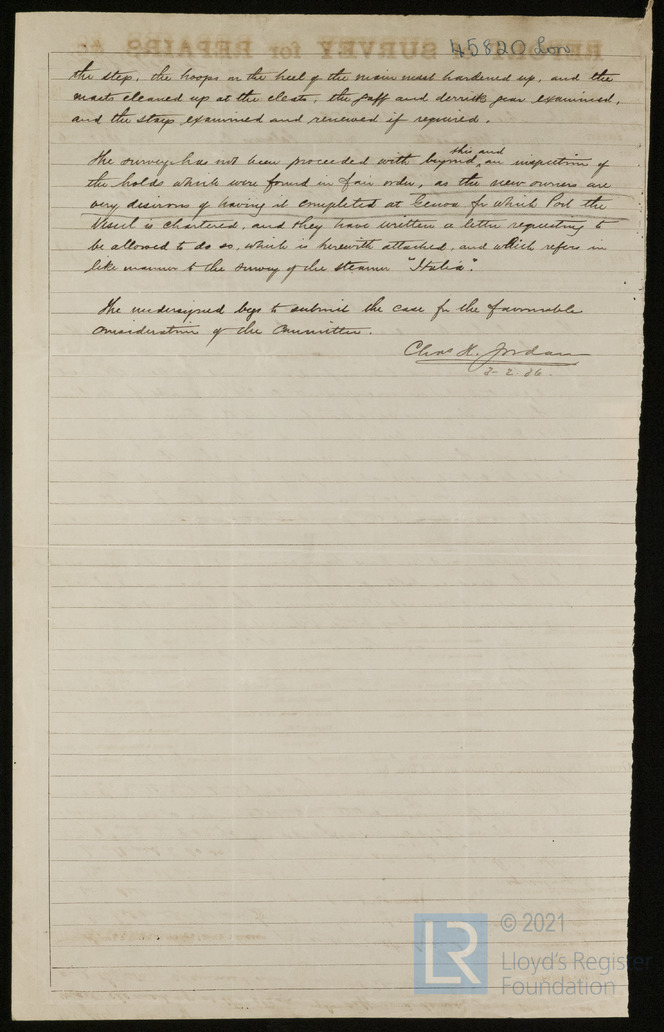 45820 Lon
the step, the hoops on the heel of the main mast hardened up, and the
masts cleaned up at the cleats, the gaff and derrick gear examined,
and the stays examined and renewed if required.
this and
The survey has not been proceeded with beyond an inspection of
the holds which were found in fair order, as the new owners are
very desirous of having it completed at Genoa for which Port the
Vessel is chartered, and they have written a letter requesting to
be allowed to do so, which is herewith attached, and which refers in
like manner to the survey of the steamer "Italia".
The undersigned begs to submit the case for the favourable
consideration of the Committee.
Chas H. Jordan
3-2-86.
LR
© 2021
Lloyd's Register
Foundation